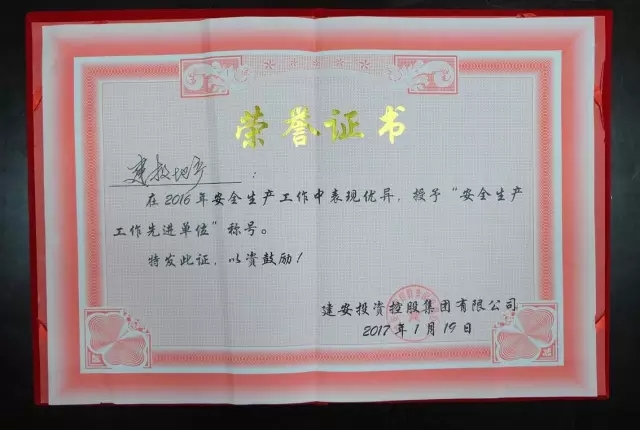 荣誉证书
建投地产：
在2016年安全生产工作中表现优异，授予“安全生产
工作先进单位”称号。
特发此证，以资鼓励！
建安投资控股集团有限公司
2017年1月19日